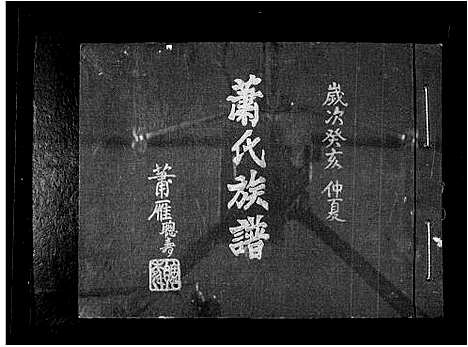 歲次癸亥 仲夏
蕭氏族譜
蕭雁聰壽